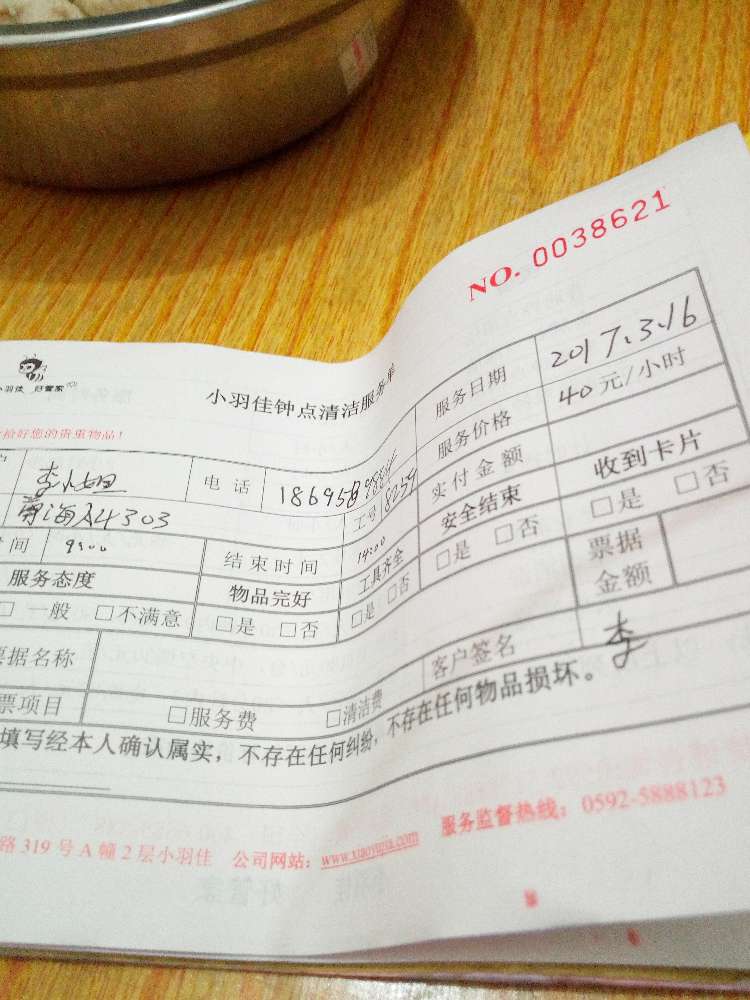 NO. 0038621
小羽佳 好管家
小羽佳钟点清洁服务单
服务日期 2017.3.16
拾好您的贵重物品！
服务价格 40元/小时
李小姐 电话 工号 8259 实付金额 收到卡片
4303 安全结束 □是 □否
时间 9:00 结束时间 14:00 工具齐全 □是 □否 票据金额
服务态度 物品完好 □是 □否
□一般 □不满意 □是 □否
票据名称 客户签名 李
票项目 □服务费 □清洁费
填写经本人确认属实，不存在任何纠纷，不存在任何物品损坏。
路319号A幢2层小羽佳 公司网站：www.xiaoyujia.com 服务监督热线：0592-5888123